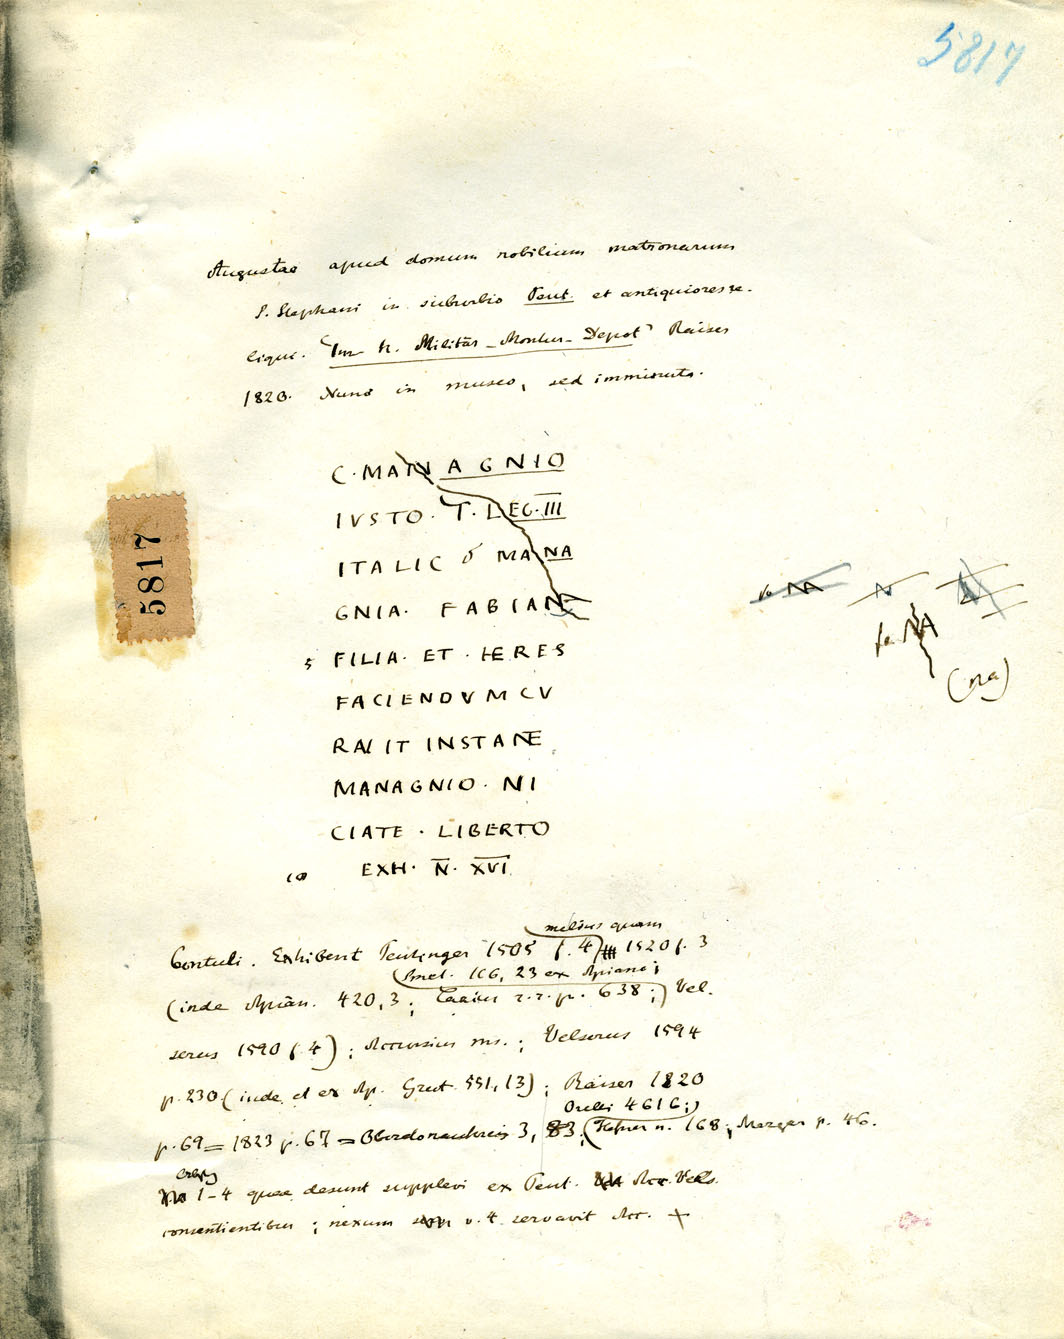 5817
Augustae apud domum nobilium matronarum
S. Stephani in suburbio Peut. et antiquiores re-
lique. "Im k. Militär-Montur-Depot" Raiser
1820. Nunc in museo, sed imminuta.
C·MANAGNIO
IVSTO·T·LEG·III
ITALIC MANA
GNIA·FABIAN
5 FILIA·ET·HERES
FACIENDVM CV
RAVIT INSTANE
MANAGNIO·NI
CIATE·LIBERTO
10 EXH·N·XVI
5817
fo NA
(na)
melius quam
Contuli. Exhibent Peutinger 1505 f. 4 1520 f. 3
Smet. 166, 23 ex Apiano;
(inde Apian. 420, 3; Lazius r. r. p. 638;) Vel.
serus 1590 f. 4); Accursius ms.; Velserus 1594
p. 230 (inde et ex Ap. Grut. 551, 13); Raiser 1820
Orelli 4616;)
p. 69 = 1823 p. 67 = Oberdonaukreis 3, 83; (Hefner n. 168; Mezger p. 46.
1-4 quae desunt supplevi ex Peut. Acc. Vels.
consentientibus; nexum v. 4 servavit Acc.